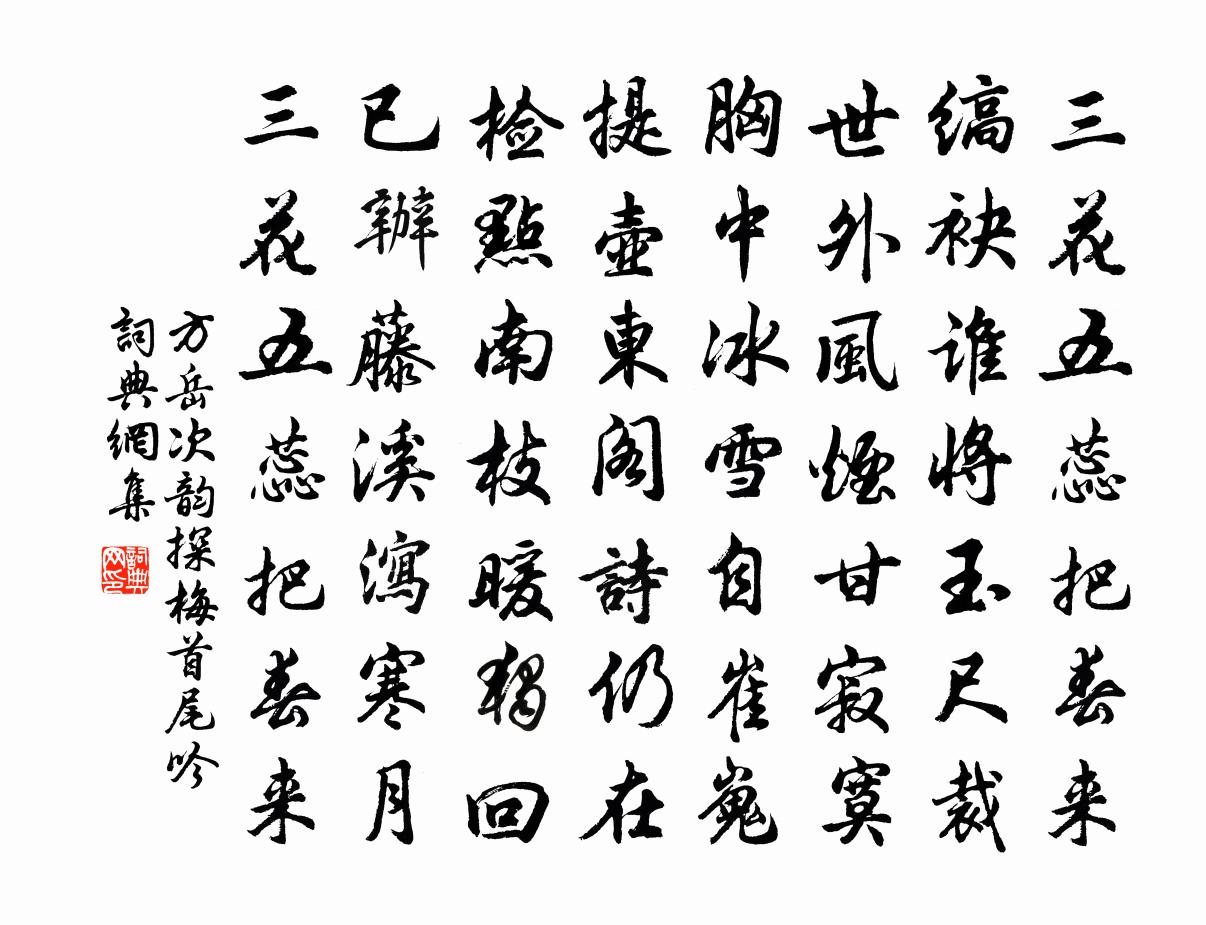 三花五蕊把春来
缟袂谁将玉尺裁
世外風煙甘寂寞
胸中冰雪自崔嵬
提壺東阁詩仍在
检點南枝暖獨回
已辦藤溪瀉寒月
三花五蕊把春来
方岳次韵探梅首尾吟
詞典網集
詞典网印